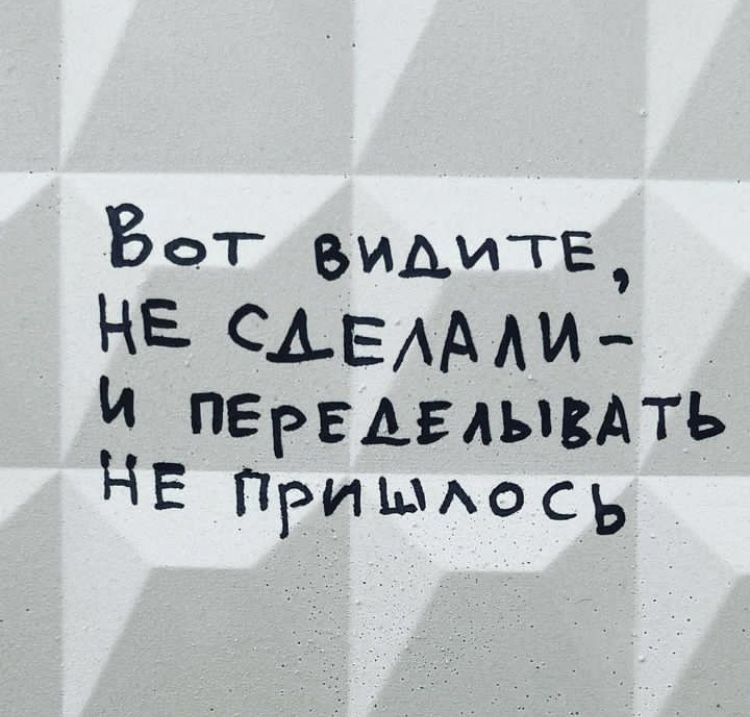 Вот видите,
не сделали –
и переделывать
не пришлось